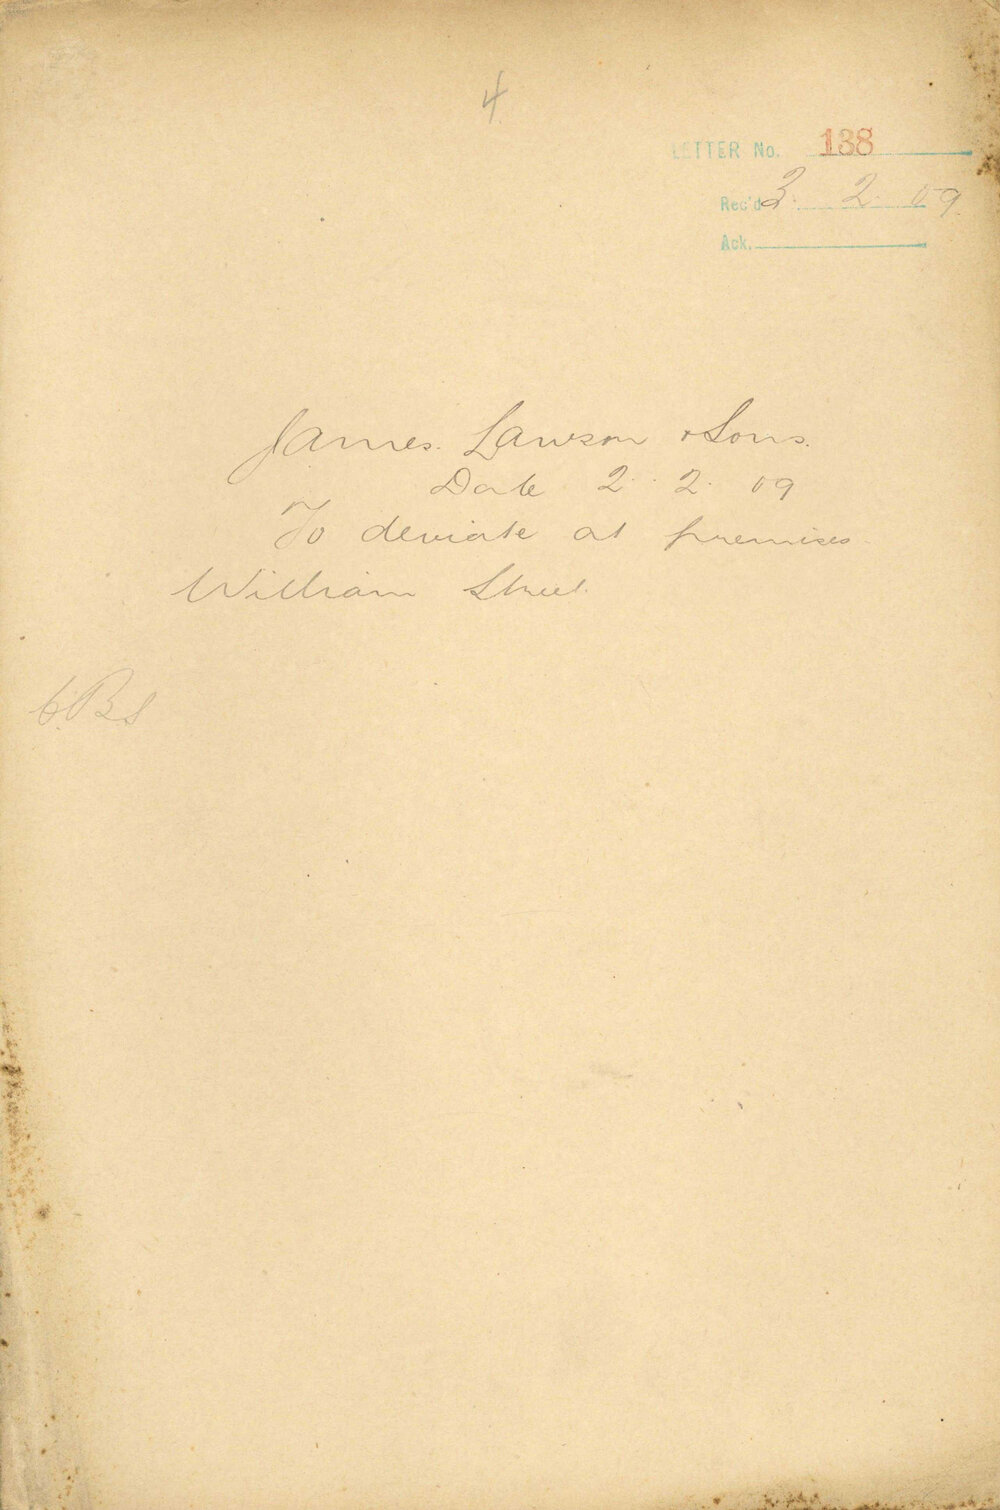 4
LETTER No. 138
Rec'd 3. 2. 09
Ack.
James. Lawson & Sons.
Date 2. 2. 09
To deviate at premises
William Street.